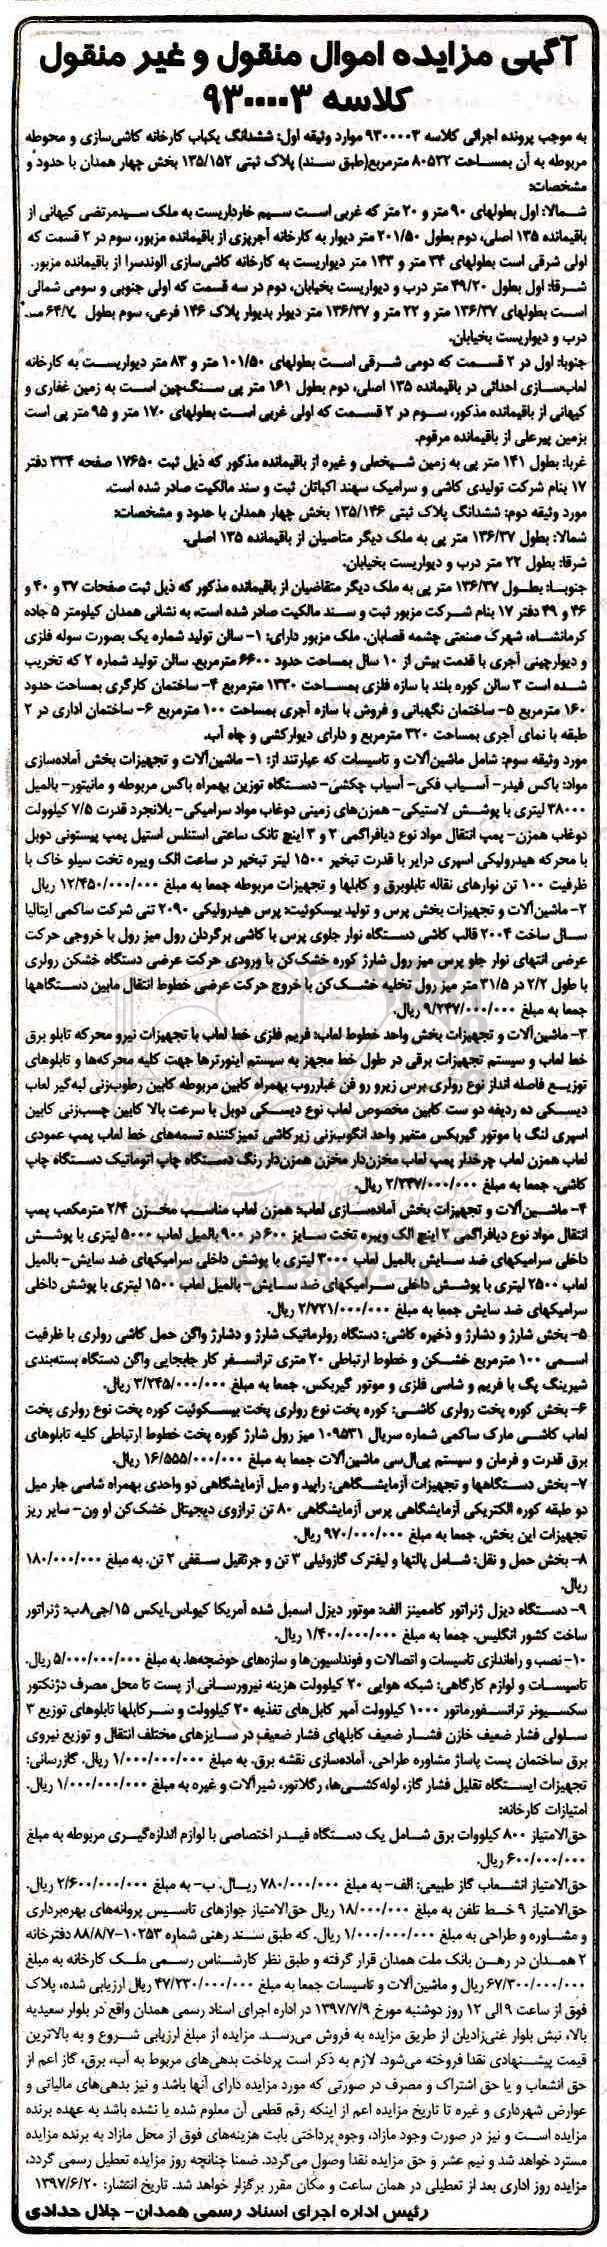 آگهی مزایده اموال منقول و غیر منقول
کلاسه ۹۳۰۰۰۰۳
به موجب پرونده اجرائی کلاسه ۹۳۰۰۰۰۳ موارد وثیقه اول: ششدانگ یکباب کارخانه کاشی‌سازی و محوطه
مربوطه به آن بمساحت ۸۰۵۲۲ مترمربع(طبق سند) پلاک ثبتی ۱۳۵/۱۵۲ بخش چهار همدان با حدود و
مشخصات:
شمالا: اول بطولهای ۹۰ متر و ۲۰ متر که غربی است سیم خارداریست به ملک سیدمرتضی کیهانی از
باقیمانده ۱۳۵ اصلی، دوم بطول ۲۰۱/۵۰ متر دیوار به کارخانه آجرپزی از باقیمانده مزبور، سوم در ۲ قسمت که
اولی شرقی است بطولهای ۳۴ متر و ۱۴۳ متر دیواریست به کارخانه کاشی‌سازی الوندسرا از باقیمانده مزبور.
شرقا: اول بطول ۴۹/۲۰ متر درب و دیواریست بخیابان، دوم در سه قسمت که اولی جنوبی و سومی شمالی
است بطولهای ۱۳۶/۳۷ متر و ۲۲ متر و ۱۳۶/۳۷ متر دیوار بدیوار پلاک ۱۴۶ فرعی، سوم بطول
درب و دیواریست بخیابان.
جنوبا: اول در ۲ قسمت که دومی شرقی است بطولهای ۱۰۱/۵۰ متر و ۸۳ متر دیواریست به کارخانه
لعاب‌سازی احداثی در باقیمانده ۱۳۵ اصلی، دوم بطول ۱۶۱ متر پی سنگ‌چین است به زمین غفاری و
کیهانی از باقیمانده مذکور، سوم در ۲ قسمت که اولی غربی است بطولهای ۱۷۰ متر و ۹۵ متر پی است
بزمین پیرعلی از باقیمانده مرقوم.
غربا: بطول ۱۴۱ متر پی به زمین شیخعلی و غیره از باقیمانده مذکور که ذیل ثبت ۱۷۶۵۰ صفحه ۳۳۴ دفتر
۱۷ بنام شرکت تولیدی کاشی و سرامیک سهند اکباتان ثبت و سند مالکیت صادر شده است.
مورد وثیقه دوم: ششدانگ پلاک ثبتی ۱۳۵/۱۴۶ بخش چهار همدان با حدود و مشخصات:
شمالا: بطول ۱۳۶/۳۷ متر پی به ملک دیگر متاصیان از باقیمانده ۱۳۵ اصلی.
شرقا: بطول ۲۲ متر درب و دیواریست بخیابان.
جنوبا: بطول ۱۳۶/۳۷ متر پی به ملک دیگر متقاضیان از باقیمانده مذکور که ذیل ثبت صفحات ۳۷ و ۴۰ و
۴۶ و ۴۹ دفتر ۱۷ بنام شرکت مزبور ثبت و سند مالکیت صادر شده است، به نشانی همدان کیلومتر ۵ جاده
کرمانشاه، شهرک صنعتی چشمه قصابان. ملک مزبور دارای: ۱- سالن تولید شماره یک بصورت سوله فلزی
و دیوارچینی آجری با قدمت بیش از ۱۰ سال بمساحت حدود ۶۶۰۰ مترمربع. سالن تولید شماره ۲ که تخریب
شده است ۳ سالن کوره بلند با سازه فلزی بمساحت ۱۳۲۰ مترمربع ۴- ساختمان کارگری بمساحت حدود
۱۶۰ مترمربع ۵- ساختمان نگهبانی و فروش با سازه آجری بمساحت ۱۰۰ مترمربع ۶- ساختمان اداری در ۲
طبقه با نمای آجری بمساحت ۳۲۰ مترمربع و دارای دیوارکشی و چاه آب.
مورد وثیقه سوم: شامل ماشین‌آلات و تاسیسات که عبارتند از: ۱- ماشین‌آلات و تجهیزات بخش آماده‌سازی
مواد: باکس فیدر- آسیاب فکی- آسیاب چکشی- دستگاه توزین بهمراه باکس مربوطه و مانیتور- بالمیل
۳۸۰۰۰ لیتری با پوشش لاستیکی- همزن‌های زمینی دوغاب مواد سرامیکی- بلانجرد قدرت ۷/۵ کیلوولت
دوغاب همزن- پمپ انتقال مواد نوع دیافراگمی ۲ و ۳ اینچ تانک ساعتی استنلس استیل پمپ پیستونی دوبل
با محرکه هیدرولیکی اسپری درایر با قدرت تبخیر ۱۵۰۰ لیتر تبخیر در ساعت الک ویبره تخت سیلو خاک با
ظرفیت ۱۰۰ تن نوارهای نقاله تابلوبرق و کابلها و تجهیزات مربوطه جمعا به مبلغ ۱۲/۴۵۰/۰۰۰/۰۰۰ ریال
۲- ماشین‌آلات و تجهیزات بخش پرس و تولید بیسکوئیت: پرس هیدرولیکی ۲۰۹۰ تنی شرکت ساکمی ایتالیا
سال ساخت ۲۰۰۴ قالب کاشی دستگاه نوار جلوی پرس با کاشی برگردان رول میز رول با خروجی حرکت
عرضی انتهای نوار جلو پرس میز رول شارژ کوره خشک‌کن با ورودی حرکت عرضی دستگاه خشکن رولری
با طول ۲/۲ در ۳۱/۵ متر میز رول تخلیه خشک‌کن با خروج حرکت عرضی خطوط انتقال مابین دستگاهها
جمعا به مبلغ ۹/۲۴۷/۰۰۰/۰۰۰ ریال.
۳- ماشین‌آلات و تجهیزات بخش واحد خطوط لعاب: فریم فلزی خط لعاب با تجهیزات نیرو محرکه تابلو برق
خط لعاب و سیستم تجهیزات برقی در طول خط مجهز به سیستم اینورترها جهت کلیه محرکه‌ها و تابلوهای
توزیع فاصله انداز نوع رولری برس زیرو رو فن غبارروب بهمراه کابین مربوطه کابین رطوب‌زنی لبه‌گیر لعاب
دیسکی ده ردیفه دو ست کابین مخصوص لعاب نوع دیسکی دوبل با سرعت بالا کابین چسب‌زنی کابین
اسپری لنگ با موتور گیربکس متغیر واحد انگوب‌زنی زیرکاشی تمیزکننده تسمه‌های خط لعاب پمپ عمودی
لعاب همزن لعاب چرخدار پمپ لعاب مخزن‌دار مخزن همزن‌دار رنگ دستگاه چاپ اتوماتیک دستگاه چاپ
کاشی. جمعا به مبلغ ۲/۲۴۷/۰۰۰/۰۰۰ ریال.
۴- ماشین‌آلات و تجهیزات بخش آماده‌سازی لعاب: همزن لعاب مناسب مخزن ۲/۴ مترمکعب پمپ
انتقال مواد نوع دیافراگمی ۲ اینچ الک ویبره تخت سایز ۶۰۰ در ۹۰۰ بالمیل لعاب ۵۰۰۰ لیتری با پوشش
داخلی سرامیکهای ضد سایش بالمیل لعاب ۳۰۰۰ لیتری با پوشش داخلی سرامیکهای ضد سایش- بالمیل
لعاب ۲۵۰۰ لیتری با پوشش داخلی سرامیکهای ضد سایش- بالمیل لعاب ۱۵۰۰ لیتری با پوشش داخلی
سرامیکهای ضد سایش جمعا به مبلغ ۲/۷۲۱/۰۰۰/۰۰۰ ریال.
۵- بخش شارژ و دشارژ و ذخیره کاشی: دستگاه رولرماتیک شارژ و دشارژ واگن حمل کاشی رولری با ظرفیت
اسمی ۱۰۰ مترمربع خشکن و خطوط ارتباطی ۲۰ متری ترانسفر کار جابجایی واگن دستگاه بسته‌بندی
شیرینگ پک با فریم و شاسی فلزی و موتور گیربکس. جمعا به مبلغ ۳/۲۴۵/۰۰۰/۰۰۰ ریال.
۶- بخش کوره پخت رولری کاشی: کوره پخت نوع رولری پخت بیسکوئیت کوره پخت نوع رولری پخت
لعاب کاشی مارک ساکمی شماره سریال ۱۰۹۵۳۱ میز رول شارژ کوره پخت خطوط ارتباطی کلیه تابلوهای
برق قدرت و فرمان و سیستم پی‌ال‌سی ماشین‌آلات جمعا به مبلغ ۱۶/۵۵۵/۰۰۰/۰۰۰ ریال.
۷- بخش دستگاهها و تجهیزات آزمایشگاهی: راپید و میل آزمایشگاهی دو واحدی بهمراه شاسی جار میل
دو طبقه کوره الکتریکی آزمایشگاهی پرس آزمایشگاهی ۸۰ تن ترازوی دیجیتال خشک‌کن او ون- سایر ریز
تجهیزات این بخش. جمعا به مبلغ ۹۷۰/۰۰۰/۰۰۰ ریال.
۸- بخش حمل و نقل: شامل پالتها و لیفترک گازوئیلی ۳ تن و جرثقیل سقفی ۲ تن. به مبلغ ۱۸۰/۰۰۰/۰۰۰
ریال.
۹- دستگاه دیزل ژنراتور کاممینز الف: موتور دیزل اسمبل شده آمریکا کیو.اس.ایکس ۱۵/جی۸ب: ژنراتور
ساخت کشور انگلیس. جمعا به مبلغ ۱/۴۰۰/۰۰۰/۰۰۰ ریال.
۱۰- نصب و راه‌اندازی تاسیسات و اتصالات و فونداسیون‌ها و سازه‌های حوضچه‌ها. به مبلغ ۵/۰۰۰/۰۰۰/۰۰۰ ریال.
تاسیسات و لوازم کارگاهی: شبکه هوایی ۲۰ کیلوولت هزینه نیرورسانی از پست تا محل مصرف دژنکتور
سکسیونر ترانسفورماتور ۱۰۰۰ کیلوولت آمپر کابل‌های تغذیه ۲۰ کیلوولت و سرکابلها تابلوهای توزیع ۳
سلولی فشار ضعیف خازن فشار ضعیف کابلهای فشار ضعیف در سایزهای مختلف انتقال و توزیع نیروی
برق ساختمان پست پاساژ مشاوره طراحی. آماده‌سازی نقشه برق. به مبلغ ۱/۰۰۰/۰۰۰/۰۰۰ ریال. گازرسانی:
تجهیزات ایستگاه تقلیل فشار گاز، لوله‌کشی‌ها، رگلاتور، شیرآلات و غیره به مبلغ ۱/۰۰۰/۰۰۰/۰۰۰ ریال.
امتیازات کارخانه:
حق‌الامتیاز ۸۰۰ کیلووات برق شامل یک دستگاه فیدر اختصاصی با لوازم اندازه‌گیری مربوطه به مبلغ
۶۰۰/۰۰۰/۰۰۰ ریال.
حق‌الامتیاز انشعاب گاز طبیعی: الف- به مبلغ ۷۸۰/۰۰۰/۰۰۰ ریال. ب- به مبلغ ۲/۶۰۰/۰۰۰/۰۰۰ ریال.
حق‌الامتیاز ۹ خط تلفن به مبلغ ۱۸/۰۰۰/۰۰۰ ریال حق‌الامتیاز جوازهای تاسیس پروانه‌های بهره‌برداری
و مشاوره و طراحی به مبلغ ۱/۰۰۰/۰۰۰/۰۰۰ ریال. که طبق سند رهنی شماره ۱۰۲۵۳-۸۸/۸/۷ دفترخانه
۲ همدان در رهن بانک ملت همدان قرار گرفته و طبق نظر کارشناس رسمی ملک کارخانه به مبلغ
۶۷/۳۰۰/۰۰۰/۰۰۰ ریال و ماشین‌آلات و تاسیسات جمعا به مبلغ ۴۷/۲۳۰/۰۰۰/۰۰۰ ریال ارزیابی شده، پلاک
فوق از ساعت ۹ الی ۱۲ روز دوشنبه مورخ ۱۳۹۷/۷/۹ در اداره اجرای اسناد رسمی همدان واقع در بلوار سعیدیه
بالا، نبش بلوار غنی‌زادیان از طریق مزایده به فروش می‌رسد. مزایده از مبلغ ارزیابی شروع و به بالاترین
قیمت پیشنهادی نقدا فروخته می‌شود. لازم به ذکر است پرداخت بدهی‌های مربوط به آب، برق، گاز اعم از
حق انشعاب و یا حق اشتراک و مصرف در صورتی که مورد مزایده دارای آنها باشد و نیز بدهی‌های مالیاتی و
عوارض شهرداری و غیره تا تاریخ مزایده اعم از اینکه رقم قطعی آن معلوم شده یا نشده باشد به عهده برنده
مزایده است و نیز در صورت وجود مازاد، وجوه پرداختی بابت هزینه‌های فوق از محل مازاد به برنده مزایده
مسترد خواهد شد و نیم عشر و حق مزایده نقدا وصول می‌گردد. ضمنا چنانچه روز مزایده تعطیل رسمی گردد،
مزایده روز اداری بعد از تعطیلی در همان ساعت و مکان مقرر برگزار خواهد شد. تاریخ انتشار: ۱۳۹۷/۶/۲۰
رئیس اداره اجرای اسناد رسمی همدان- جلال حدادی